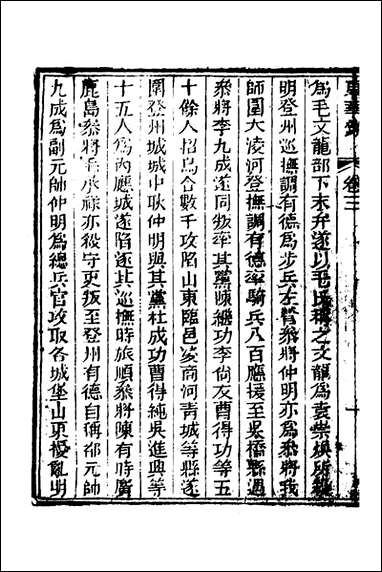 東華錄 卷三
爲毛文龍部下末弁遂以毛氏稱之文龍爲袁崇煥所殺
明登州巡撫調有德爲步兵左營叅將仲明亦爲叅將我
師圍大凌河登撫調有德率騎兵八百應援至吳橋縣遇
叅將李九成遂同叛率其黨陳繼功李尙友曹得功等五
十餘人招烏合數千攻陷山東臨邑菱商河青城等縣遂
圍登州城城中耿仲明與其黨杜成功曹得純吳進興等
十五人爲內應城遂陷逐其巡撫時旅順叅將陳有時廣
鹿島叅將毛承祿亦從守吏叛至登州有德自稱都元帥
九成爲副元帥仲明爲總兵官攻取各城堡山東擾亂明